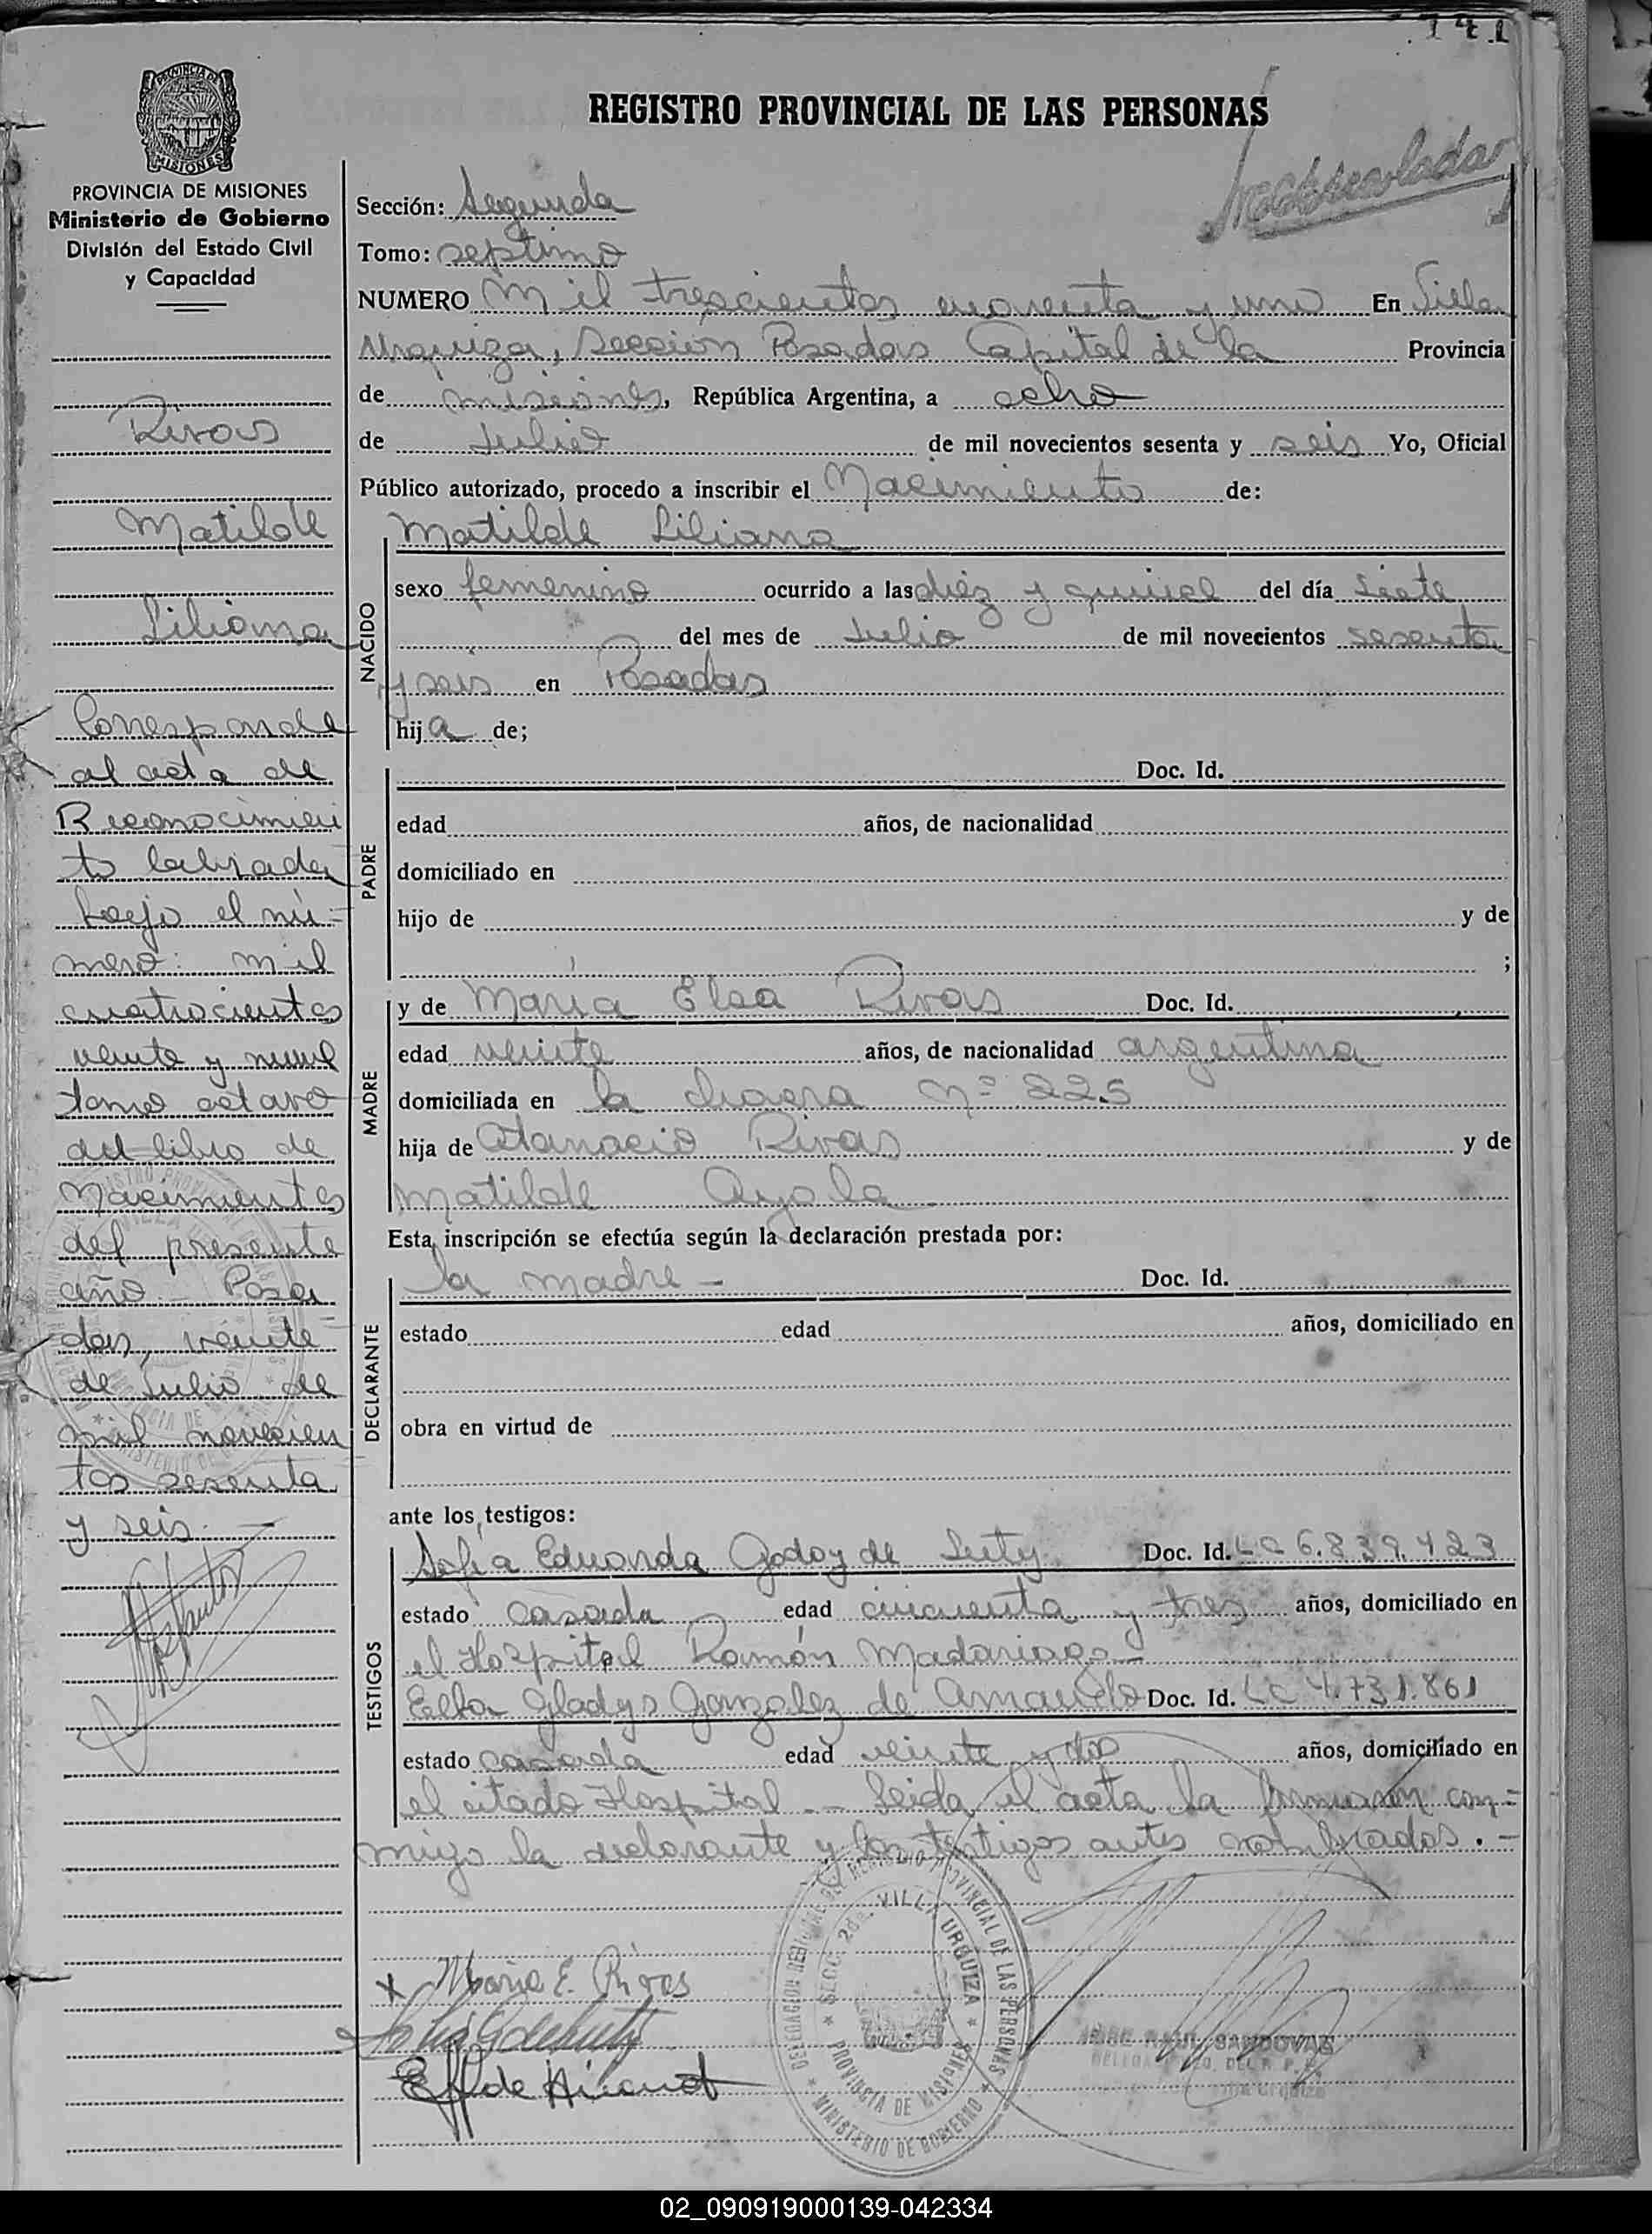 141
REGISTRO PROVINCIAL DE LAS PERSONAS
PROVINCIA DE MISIONES
Ministerio de Gobierno
División del Estado Civil
y Capacidad
Rivas
Matilde
Liliana
Corresponde
al acta de
Reconocimien
to labrada
bajo el nú=
mero: mil
cuatrocientos
veinte y nueve
tomo octavo
del libro de
Nacimientos
del presente
año - Posa
das, veinte
de Julio de
mil novecien
tos sesenta
y seis. -
Sección: Segunda
Tomo: septimo
NUMERO mil trescientos cuarenta y uno En Villa
Urquiza, Sección Posadas Capital de la Provincia
de misiones, República Argentina, a ocho
de Julio de mil novecientos sesenta y seis Yo, Oficial
Público autorizado, procedo a inscribir el Nacimiento de:
NACIDO
Matilde Liliana
sexo femenino ocurrido a las diez y quince del día siete
del mes de Julio de mil novecientos sesenta
y seis en Posadas
hija de;
PADRE
Doc. Id.
edad años, de nacionalidad
domiciliado en
hijo de y de
;
MADRE
y de María Elsa Rivas Doc. Id.
edad veinte años, de nacionalidad argentina
domiciliada en la chacra Nº 225
hija de Atanacio Rivas y de
Matilde Ayala
Esta inscripción se efectúa según la declaración prestada por:
DECLARANTE
la madre - Doc. Id.
estado edad años, domiciliado en
obra en virtud de
ante los testigos:
TESTIGOS
Sofía Eduarda Godoy de Doc. Id. LC 6.839.423
estado casada edad cincuenta y tres años, domiciliado en
el Hospital Ramón Madariaga -
Elba Gladys Gonzalez de Doc. Id. LC 4.731.861
estado casada edad veinte y dos años, domiciliado en
el citado Hospital -- Leida el acta la firmaron con=
migo la declarante y los testigos antes nombrados. -
x María E. Rivas
DELEGACION DEL REGISTRO PROVINCIAL DE LAS PERSONAS
SECC. 2da. VILLA URQUIZA
PROVINCIA DE MISIONES
MINISTERIO DE GOBIERNO
RAUL SANDOVAL
02_090919000139-042334